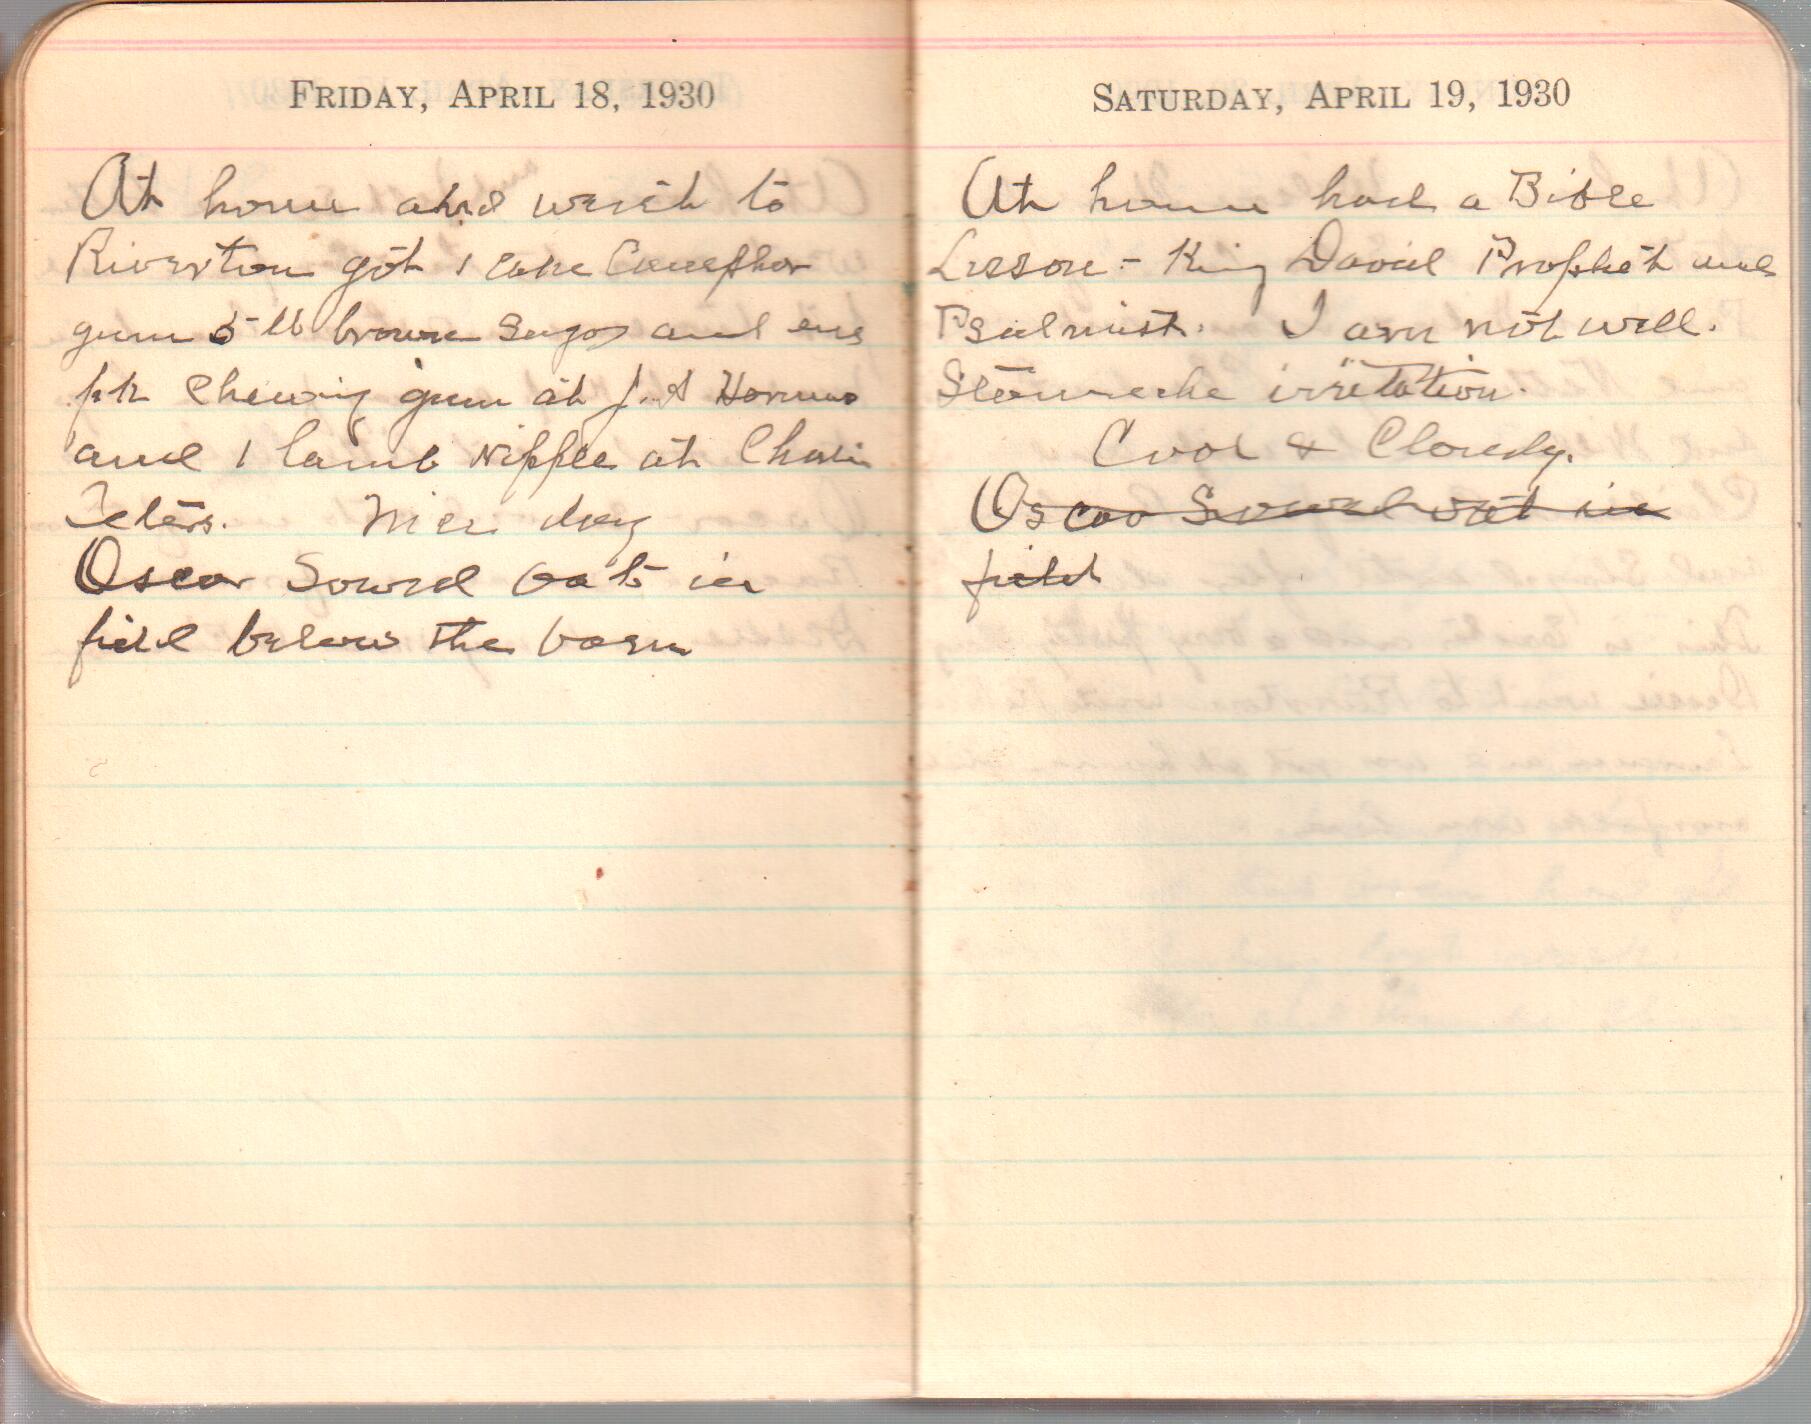 FRIDAY, APRIL 18, 1930
At home and went to
Riverton got 1 cake Camphor
gum 5 lb brown Sugar and one
pk Chewing gum at J. A
and 1 lamb nipple at Charlie
Teters. Nice day
Oscar Sowed oats in
field below the barn
SATURDAY, APRIL 19, 1930
At home had a Bible
Lesson - King David Prophet and
Psalmist. I am not well.
Stomache irritation.
Cool & Cloudy.
Oscar Sowed oat in
field